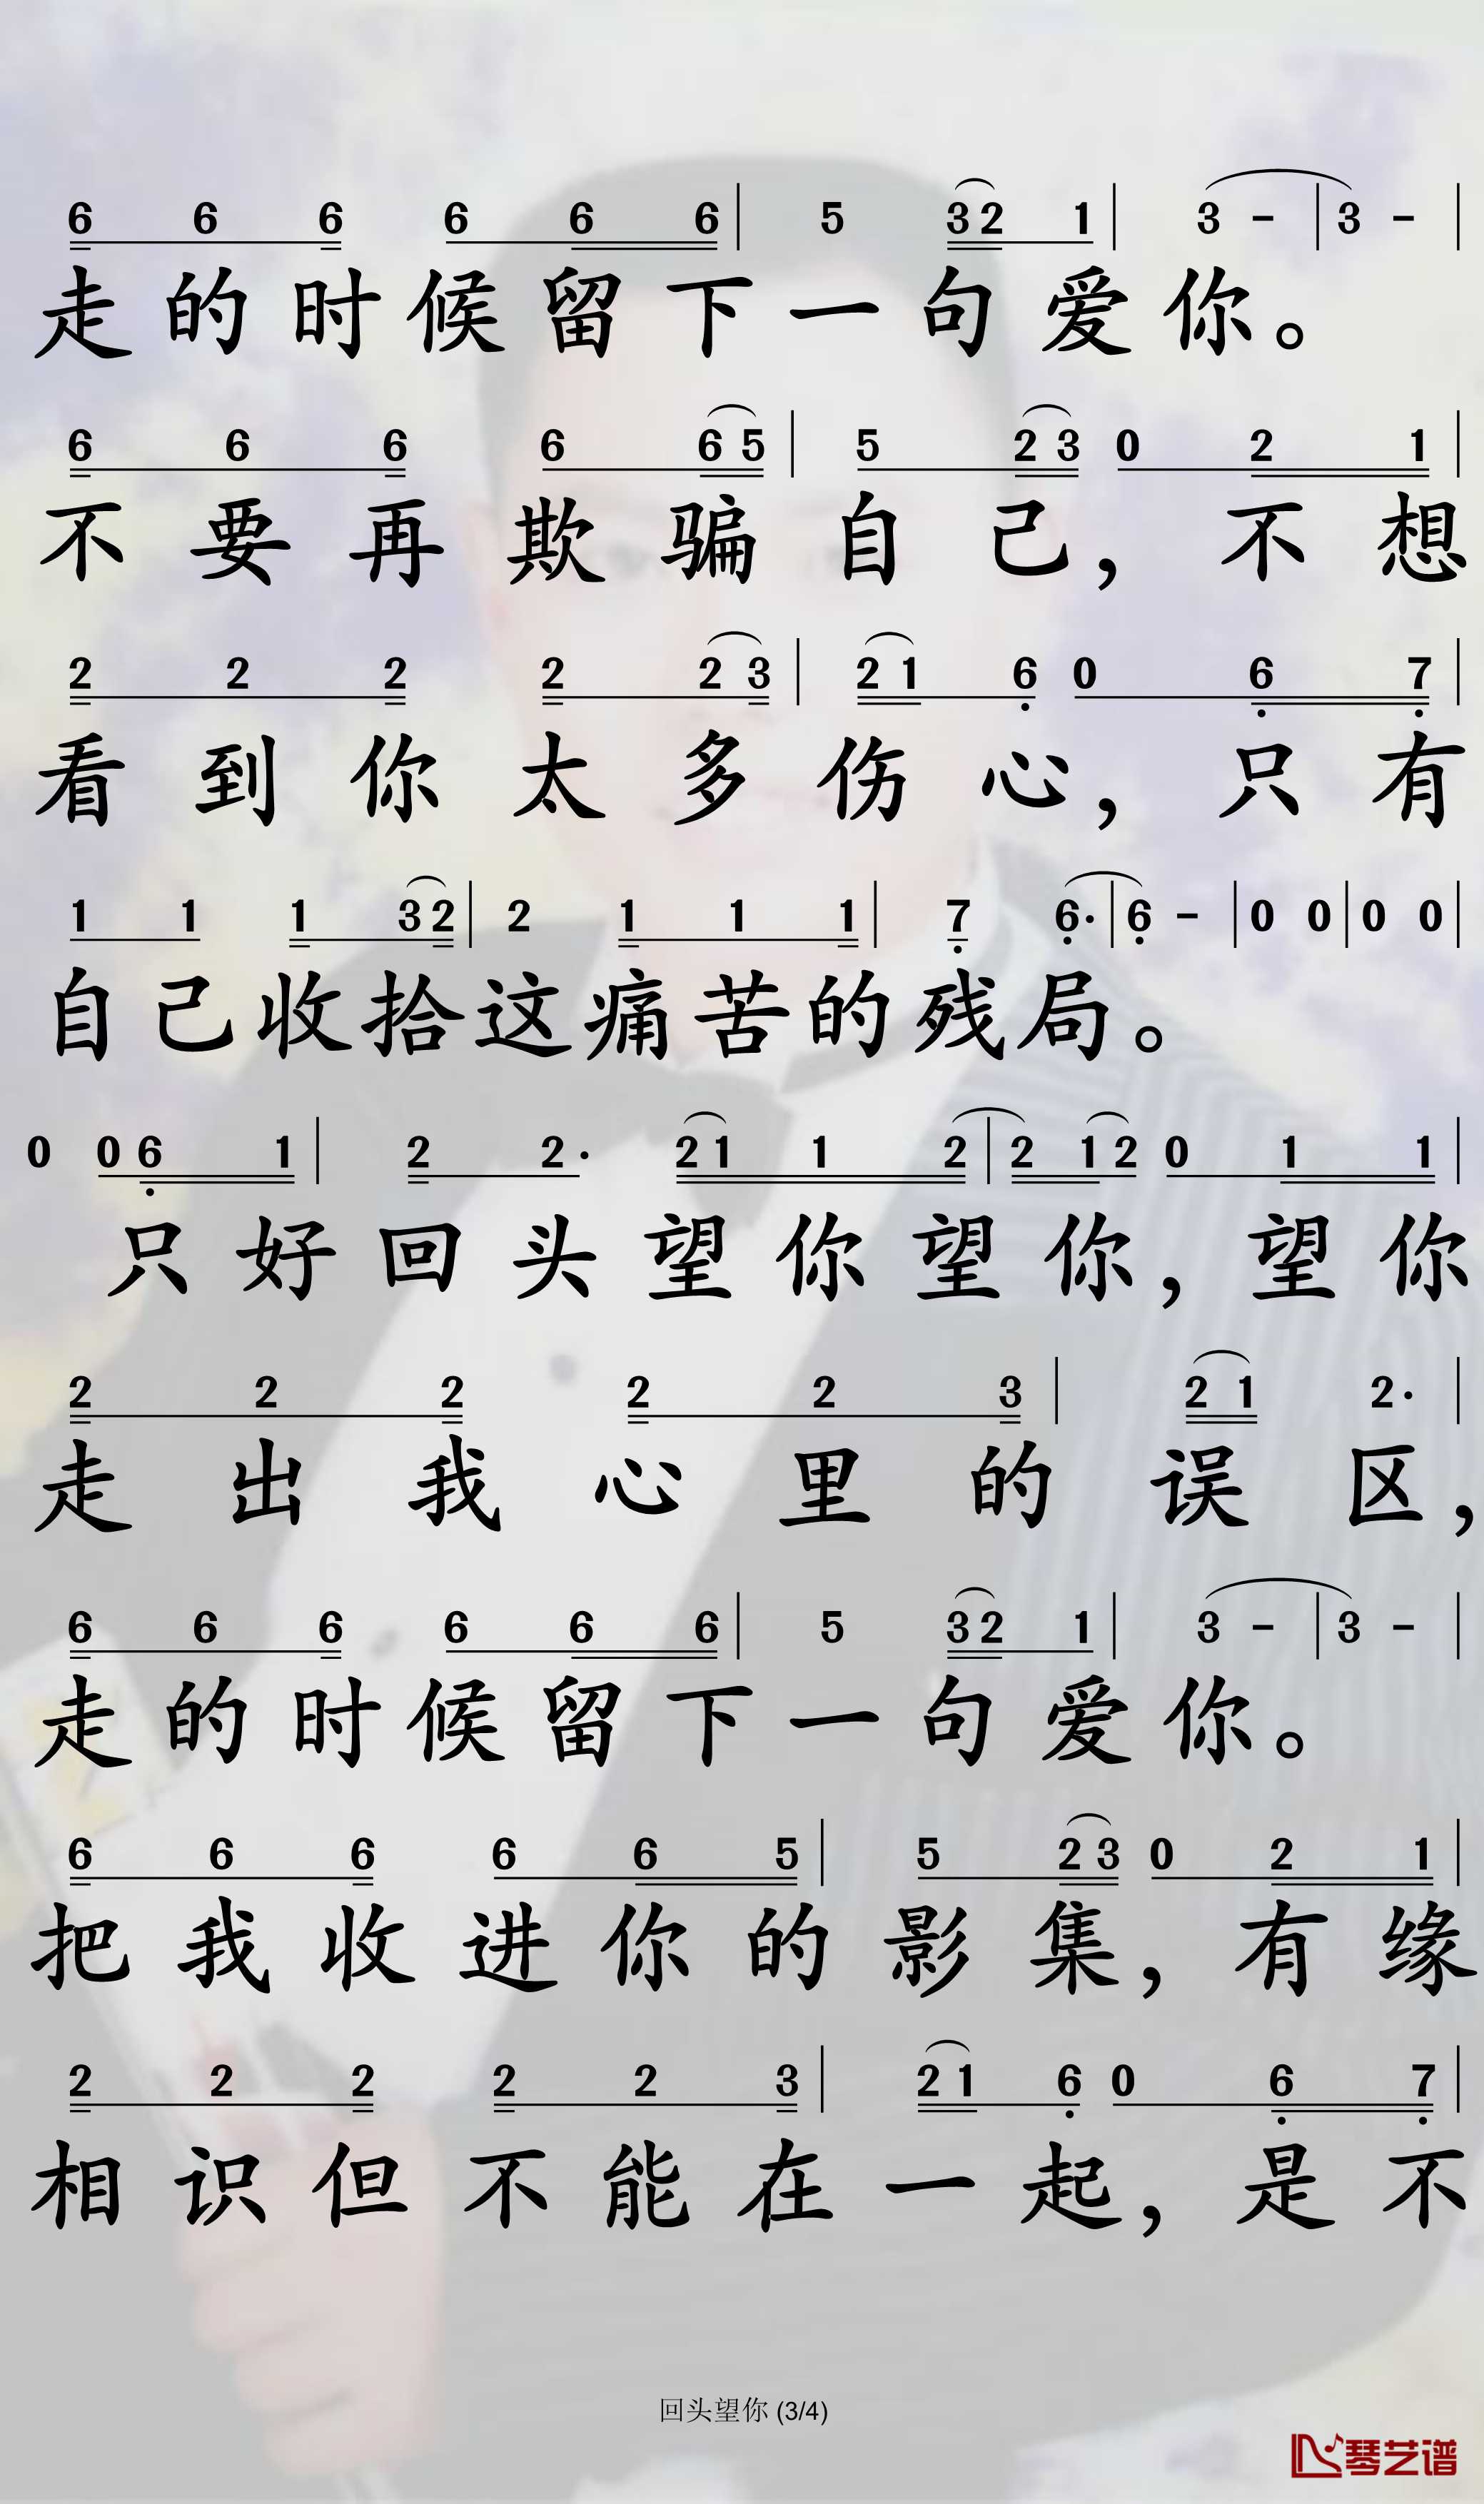 6 6 6 6 6 6 | 5 3 2 1 | 3 – | 3 – |
走的时候留下一句爱你。
6 6 6 6 6 5 | 5 2 3 0 2 1 |
不要再欺骗自己，不想
2 2 2 2 2 3 | 2 1 6 0 6 7 |
看到你太多伤心，只有
1 1 1 3 2 | 2 1 1 1 | 7 6· | 6 – | 0 0 | 0 0 |
自己收拾这痛苦的残局。
0 0 6 1 | 2 2· 2 1 1 2 | 2 1 2 0 1 1 |
只好回头望你望你，望你
2 2 2 2 2 3 | 2 1 2· |
走出我心里的误区，
6 6 6 6 6 6 | 5 3 2 1 | 3 – | 3 – |
走的时候留下一句爱你。
6 6 6 6 6 5 | 5 2 3 0 2 1 |
把我收进你的影集，有缘
2 2 2 2 2 3 | 2 1 6 0 6 7 |
相识但不能在一起，是不
回头望你 (3/4)
琴艺谱